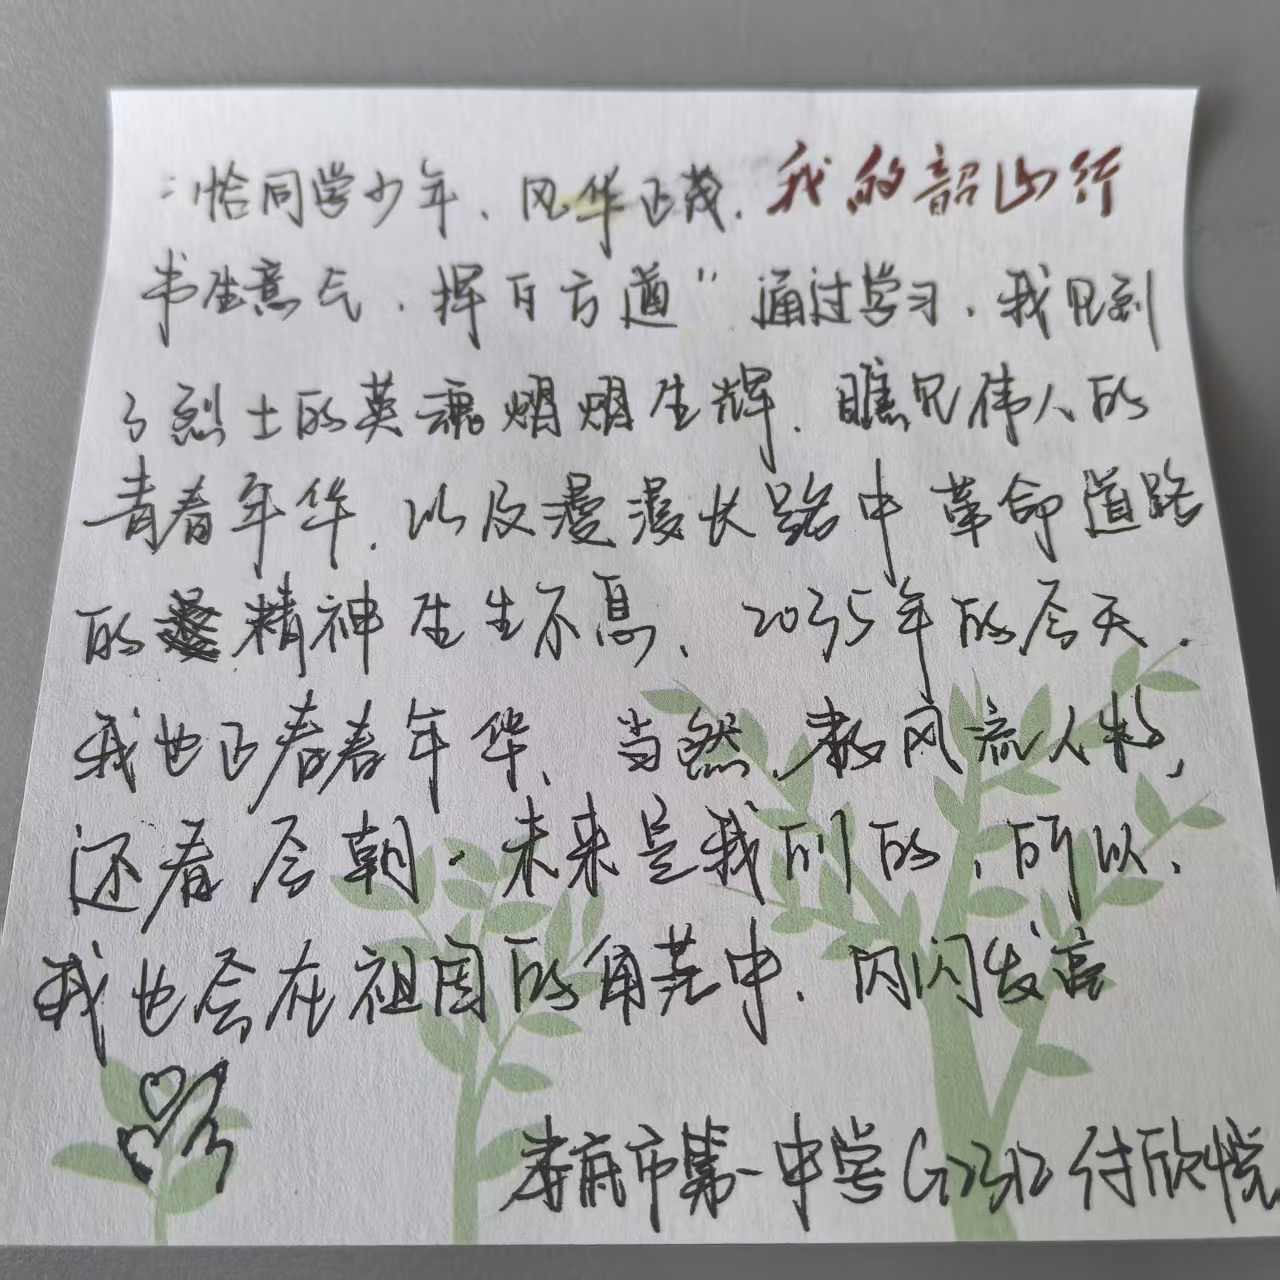 “恰同学少年,风华正茂, 我的韶山行
书生意气,挥百方遒”通过学习,我见到
了烈士的英魂熠熠生辉,瞧见伟人的
青春年华,以及漫漫长路中革命道路
的精神生生不息,2035年的今天,
我也正春春年华,当然,数风流人物,
还看今朝,未来是我们的,所以,
我也会在祖国的角落中,闪闪发亮
市第一中学G2312付欣悦